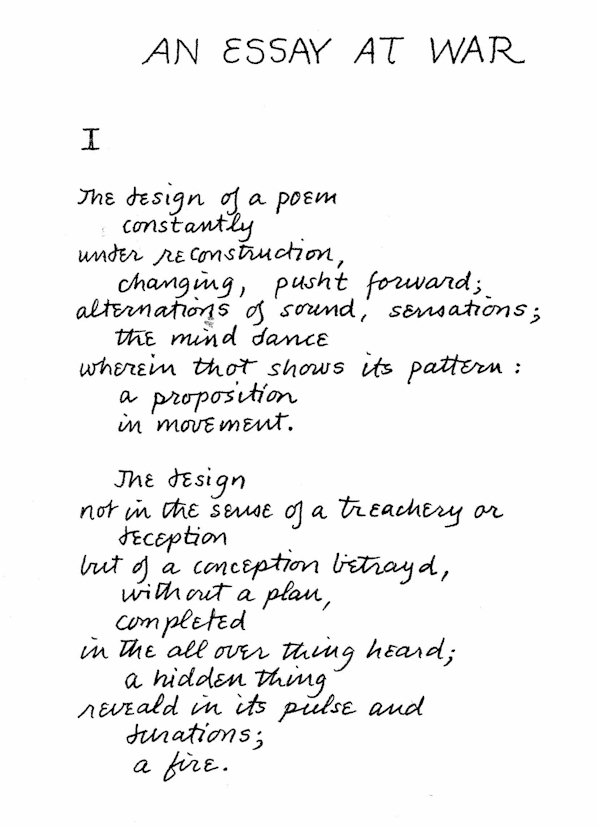 AN ESSAY AT WAR
I
The design of a poem
constantly
under reconstruction,
changing, pusht forward;
alternations of sound, sensations;
the mind dance
wherein thot shows its pattern:
a proposition
in movement.
The design
not in the sense of a treachery or
deception
but of a conception betrayd,
without a plan,
completed
in the all over thing heard;
a hidden thing
reveald in its pulse and
durations;
a fire.